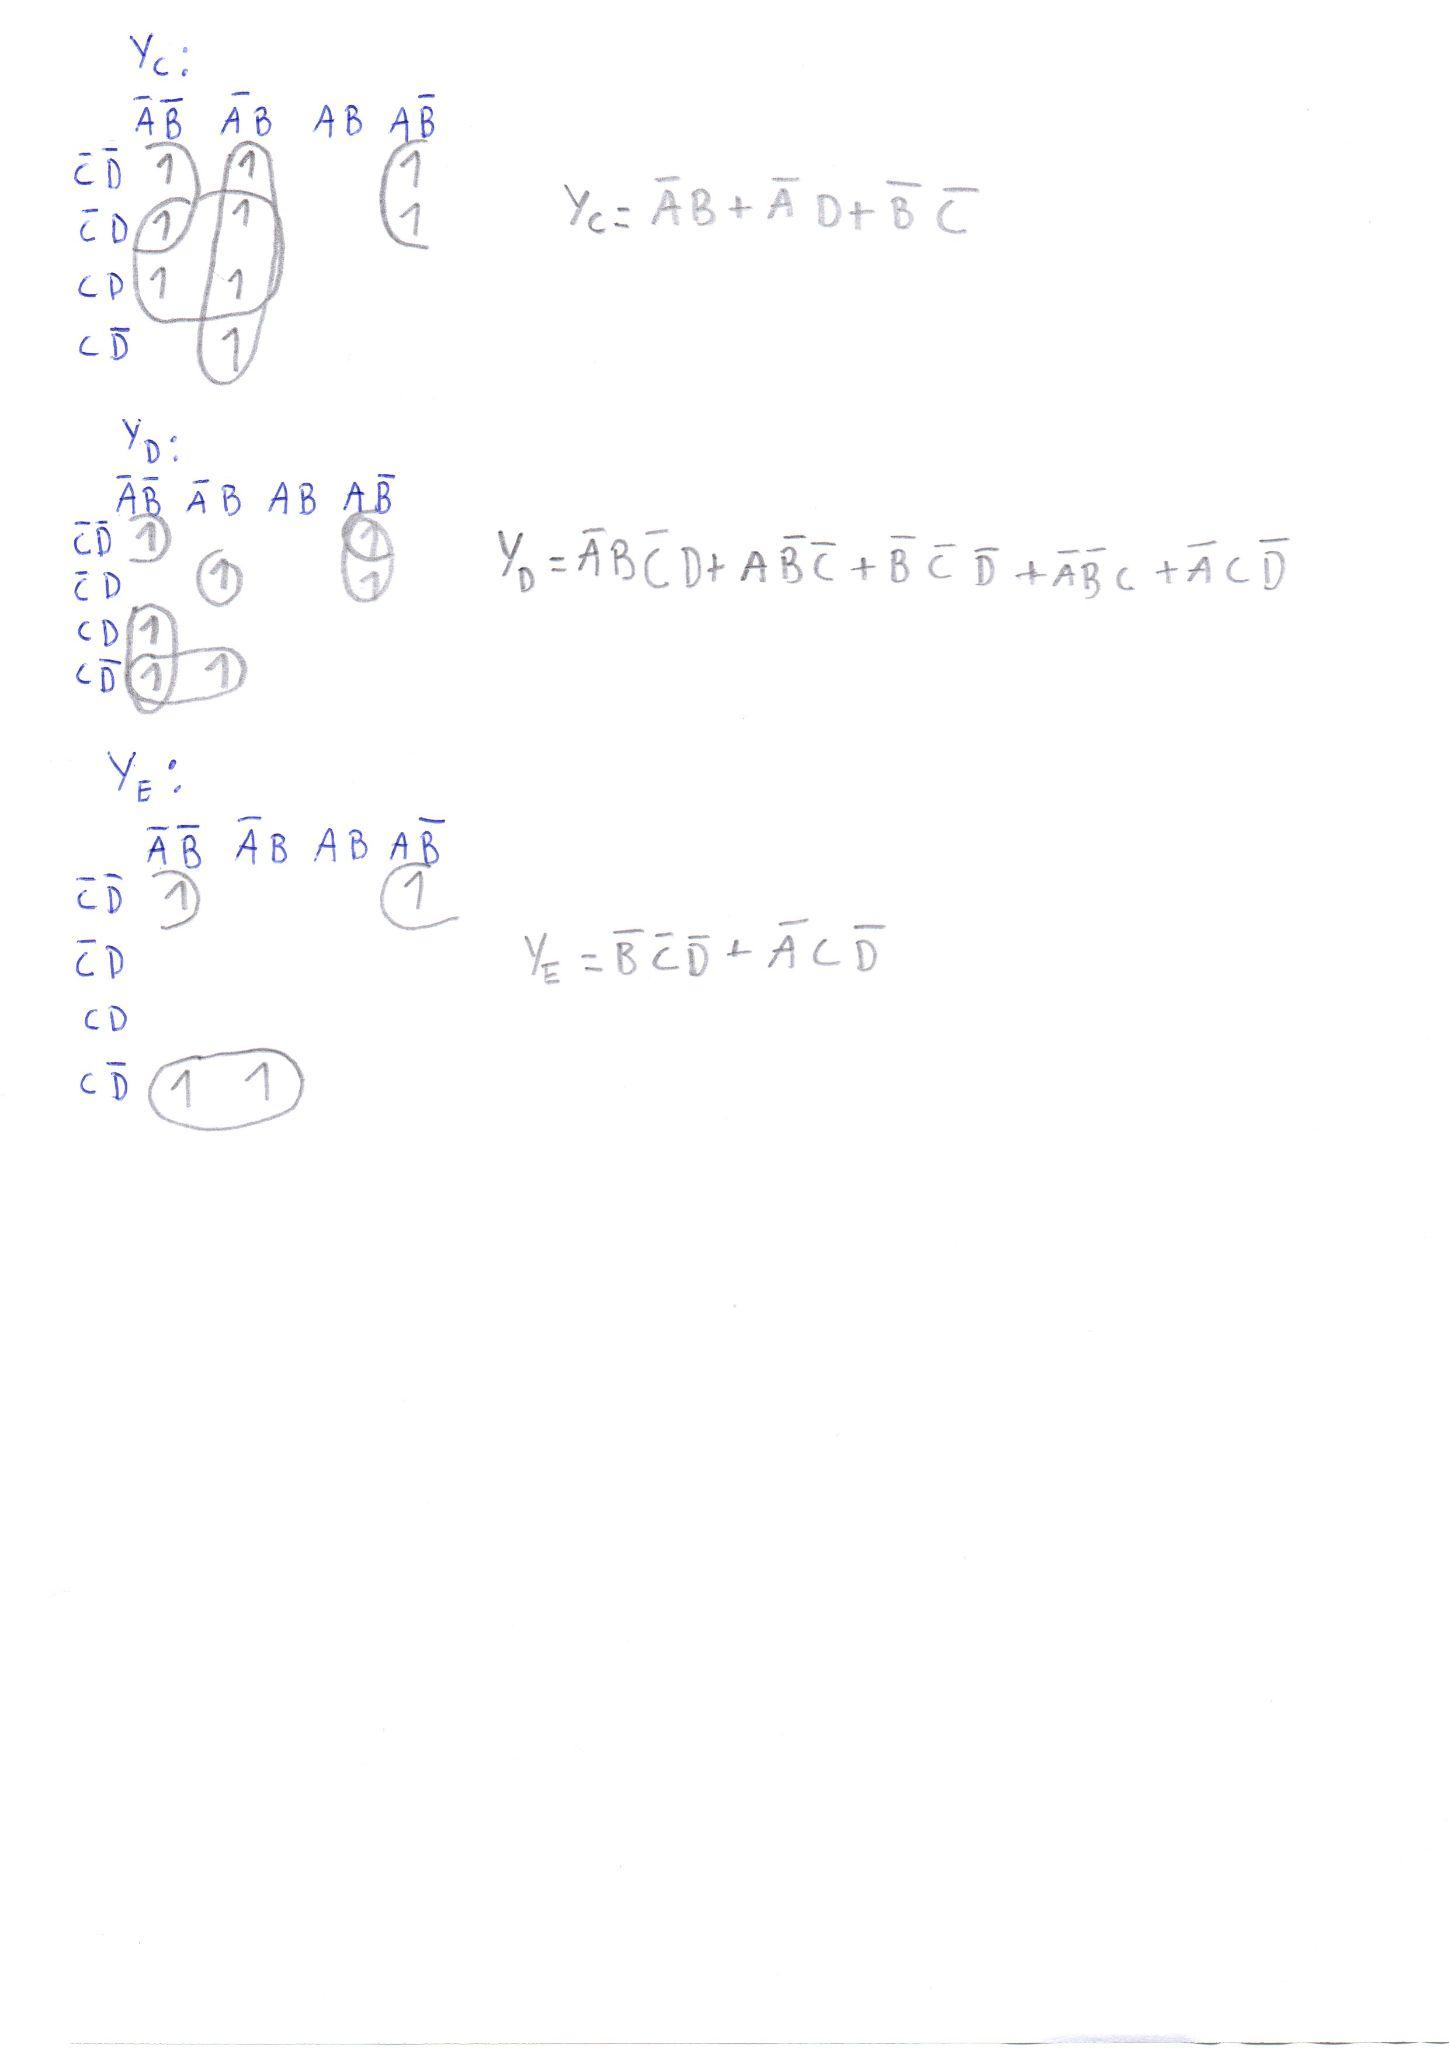 Y_C:
A̅B̅ A̅B AB AB̅
C̅D̅ 1 1 1
C̅D 1 1 1
CD 1 1
CD̅ 1
Y_C = A̅B + A̅D + B̅ C̅
Y_D:
A̅B̅ A̅B AB AB̅
C̅D̅ 1 1
C̅D 1 1
CD 1
CD̅ 1 1
Y_D = A̅BC̅D + AB̅C̅ + B̅C̅D̅ + A̅B̅C + A̅CD̅
Y_E:
A̅B̅ A̅B AB AB̅
C̅D̅ 1 1
C̅D
CD
CD̅ 1 1
Y_E = B̅C̅D̅ + A̅CD̅